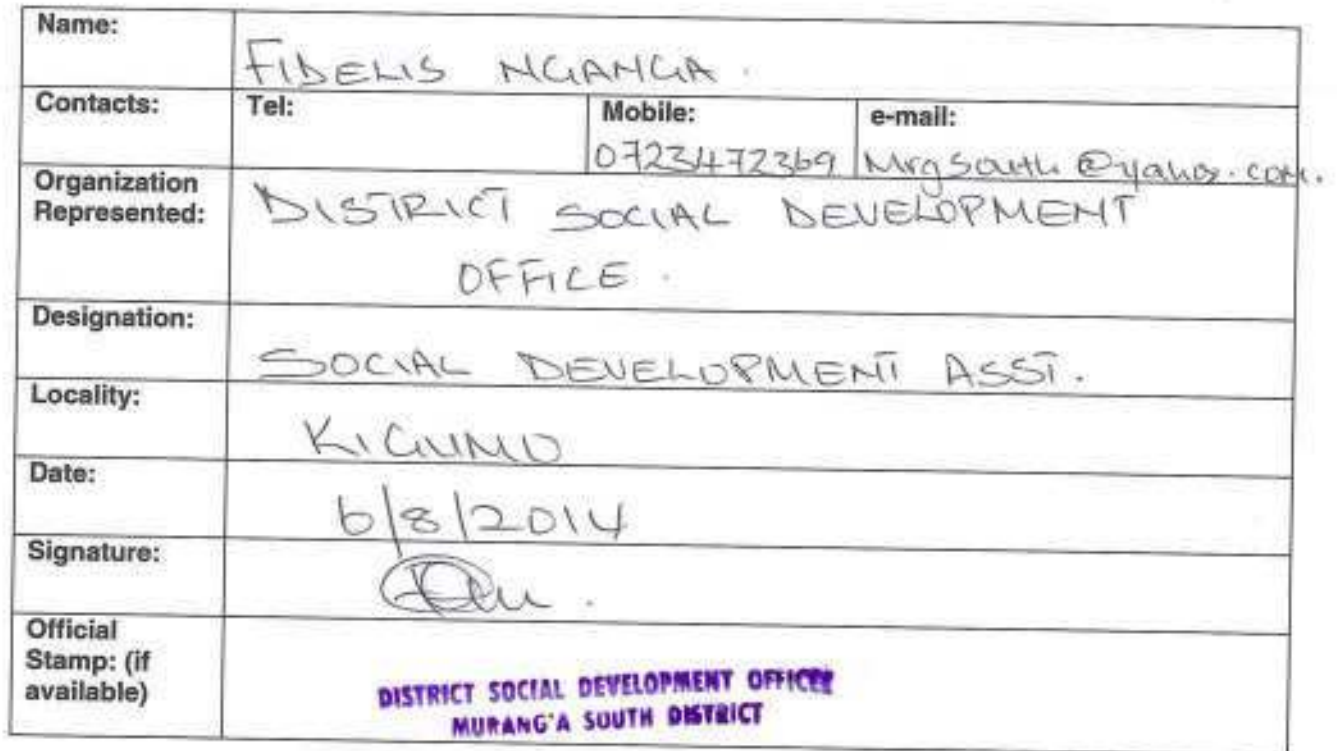 Name:
FIDELIS NGANGA.
Contacts:
Tel:
Mobile:
e-mail:
0723472369
Mrgsouth@yahoo.com.
Organization
Represented:
DISTRICT SOCIAL DEVELOPMENT
OFFICE.
Designation:
SOCIAL DEVELOPMENT ASST.
Locality:
KIGUMO
Date:
6/8/2014
Signature:
Official
Stamp: (if
available)
DISTRICT SOCIAL DEVELOPMENT OFFICER
MURANG'A SOUTH DISTRICT